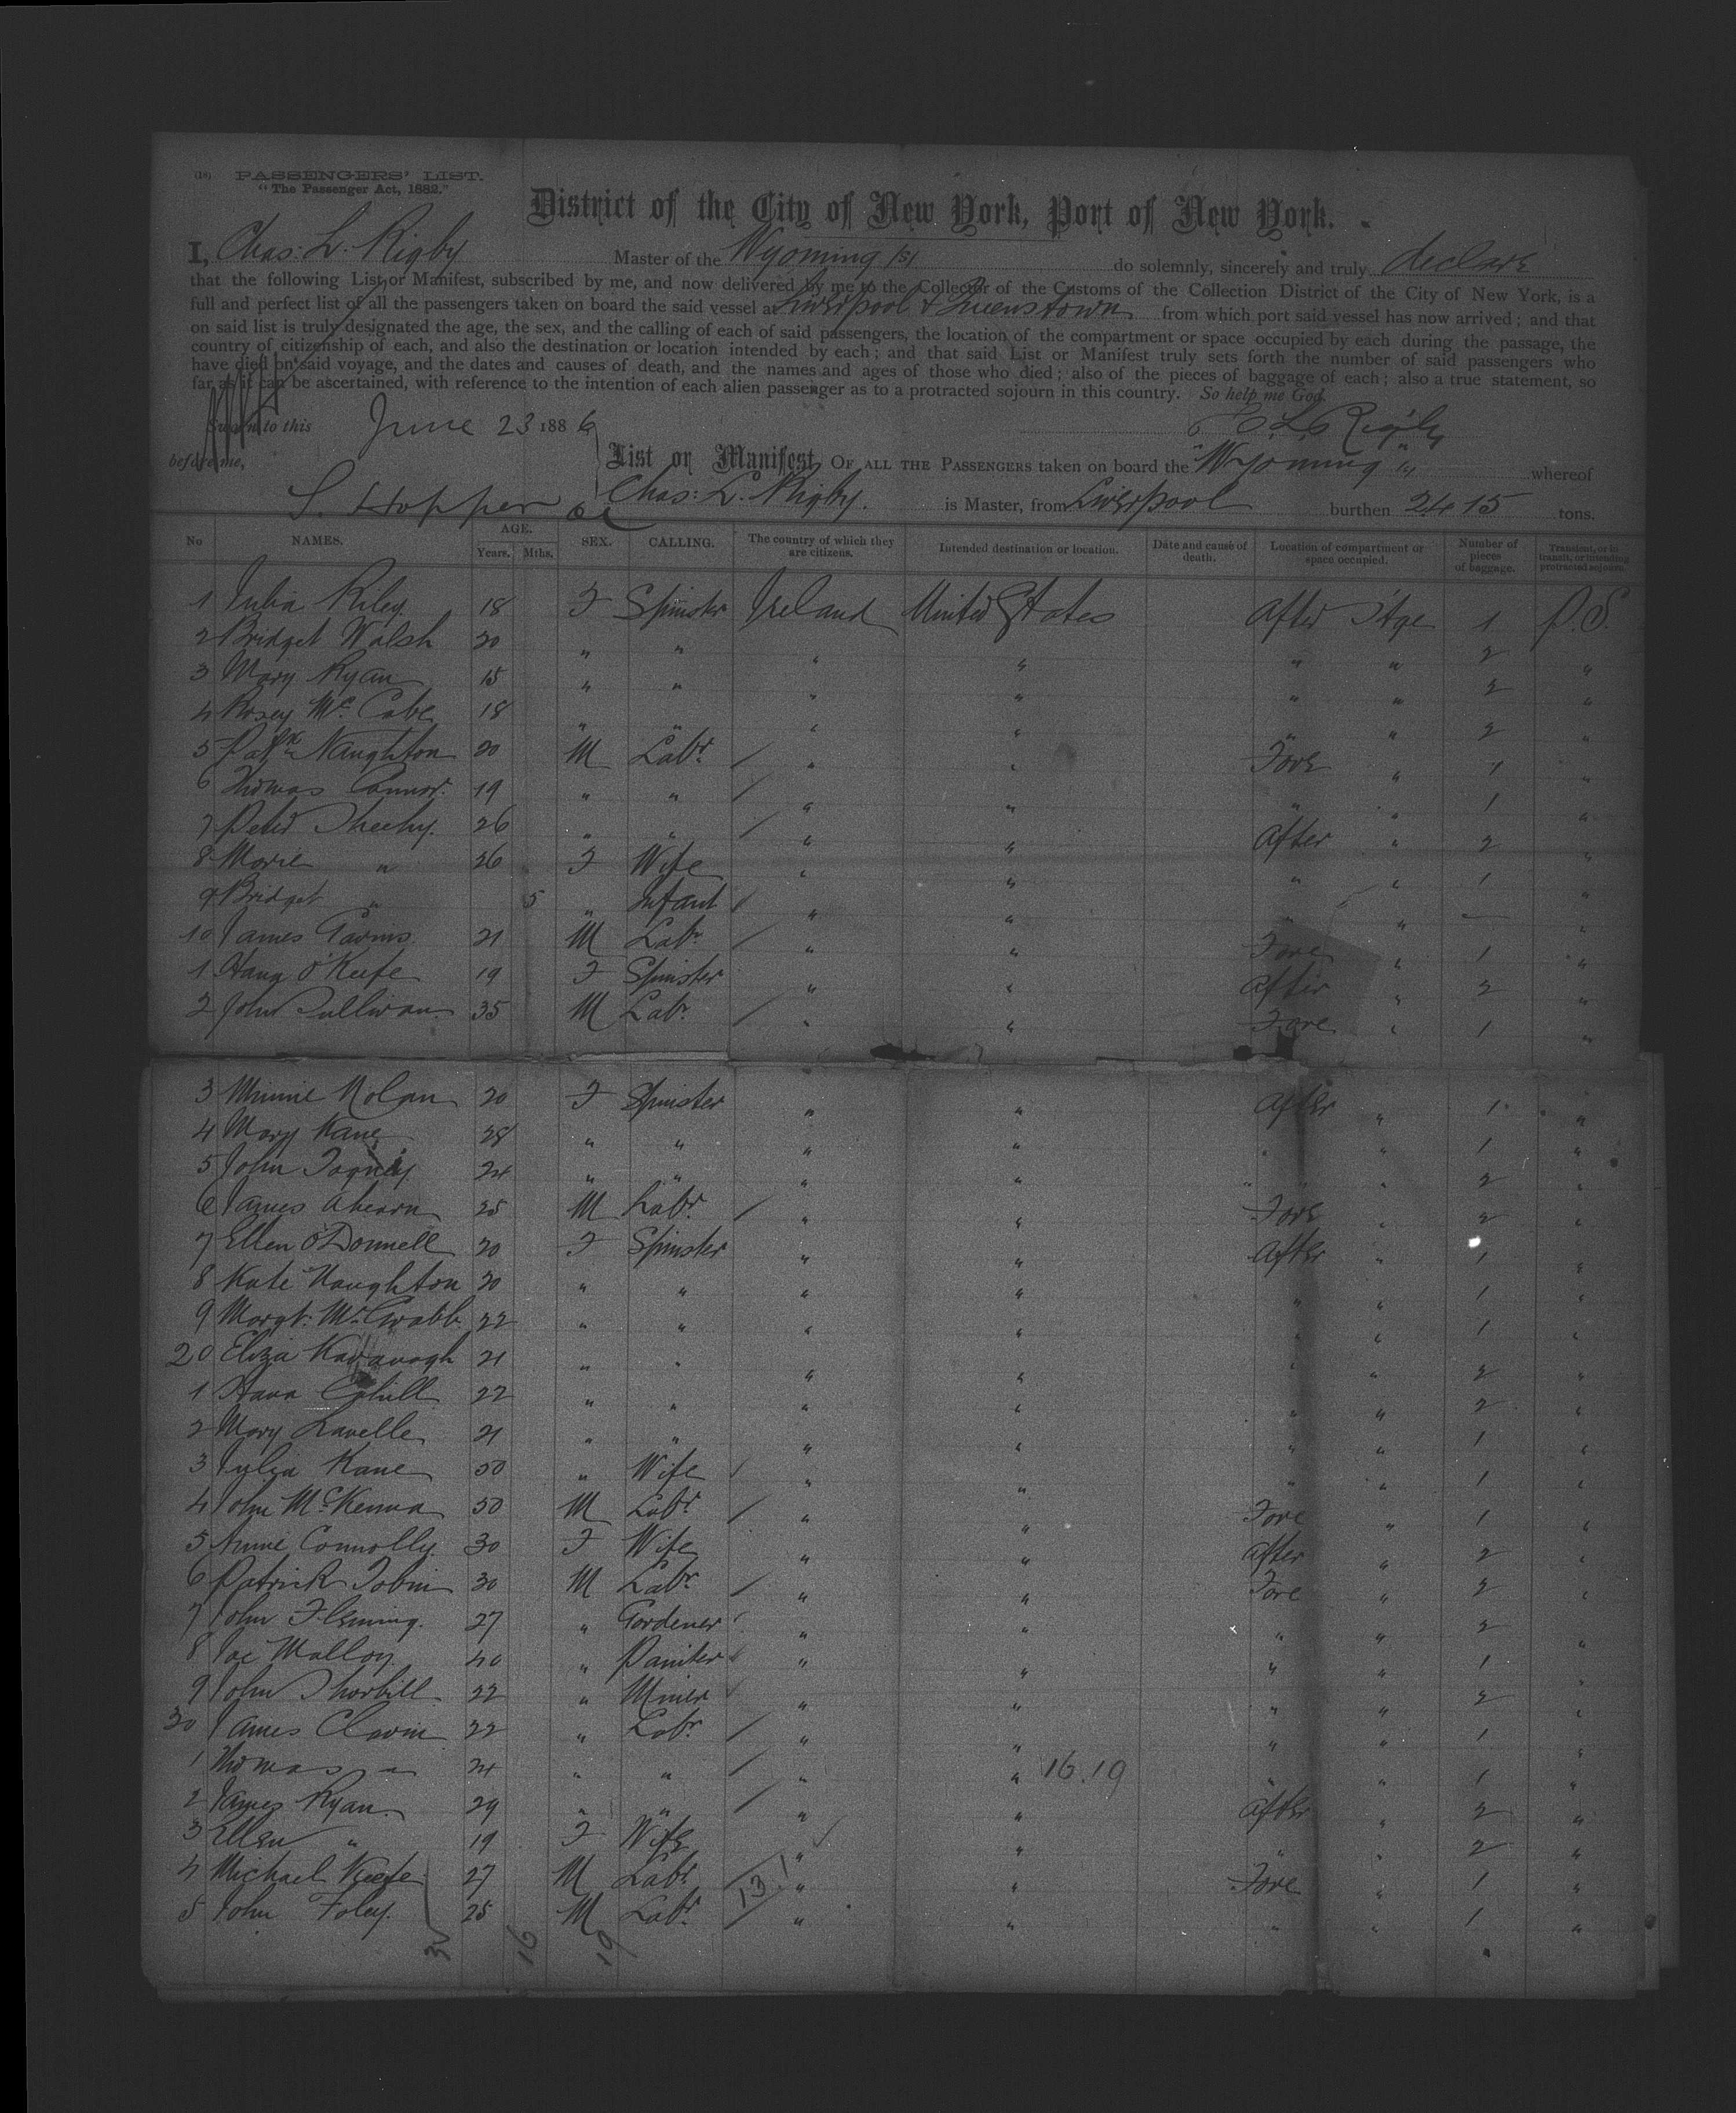 (18) PASSENGERS' LIST.
"The Passenger Act, 1882."
District of the City of New York, Port of New York.
I, Chas: L. Rigby Master of the Wyoming do solemnly, sincerely and truly declare
that the following List or Manifest, subscribed by me, and now delivered by me to the Collector of the Customs of the Collection District of the City of New York, is a
full and perfect list of all the passengers taken on board the said vessel at Liverpool & Queenstown from which port said vessel has now arrived; and that
on said list is truly designated the age, the sex, and the calling of each of said passengers, the location of the compartment or space occupied by each during the passage, the
country of citizenship of each, and also the destination or location intended by each; and that said List or Manifest truly sets forth the number of said passengers who
have died on said voyage, and the dates and causes of death, and the names and ages of those who died; also of the pieces of baggage of each; also a true statement, so
far as it can be ascertained, with reference to the intention of each alien passenger as to a protracted sojourn in this country. So help me God.
Sworn to this June 23 1886 C. L. Rigby
before me, List or Manifest OF ALL THE PASSENGERS taken on board the "Wyoming" whereof
S. Hopper Chas: L. Rigby. is Master, from Liverpool burthen 2415 tons.
No NAMES. AGE. Years. Mths. SEX. CALLING. The country of which they are citizens. Intended destination or location. Date and cause of death. Location of compartment or space occupied. Number of pieces of baggage. Transient, or in transit, or intending protracted sojourn.
1 Julia Riley 18 F Spinster Ireland United States After S'tge 1 P.S.
2 Bridget Walsh 20 " " " " " " 2 "
3 Mary Ryan 15 " " " " " " 2 "
4 Rosey McCabe 18 " " " " " " 2 "
5 Patk Naughton 20 M Labr. " " Fore " 1 "
6 Thomas Connor. 19 " " " " " " 1 "
7 Peter Sheehy. 26 " " " " After " 2 "
8 Marie " 26 F Wife " " " " 1 "
9 Bridget " 5 " Infant " " " " — "
10 James 21 M Labr " " Fore " 1 "
1 Hana O'Keefe 19 F Spinster " " After " 2 "
2 John Sullivan 35 M Labr. " " Fore " 1 "
3 Minnie Nolan 20 F Spinster " " After " 1 "
4 Mary Kane 28 " " " " " " 1 "
5 John 24 " " " " " " 2 "
6 James Ahearn 25 M Labr. " " Fore " 2 "
7 Ellen O'Donnell 20 F Spinster " " After " 1 "
8 Kate Naughton 20 " " " " " " 1 "
9 Margt: 22 " " " " " " 1 "
20 Eliza Kavanagh 21 " " " " " " 2 "
1 Hana Cahill 22 " " " " " " 2 "
2 Mary Lavelle 21 " " " " " " 1 "
3 Julia Kane 50 " Wife " " " " 1 "
4 John McKenna 50 M Labr. " " Fore " 1 "
5 Annie Connolly 30 F Wife " " After " 2 "
6 Patrick Tobin 30 M Labr. " " Fore " 2 "
7 John Fleming. 27 " Gardener " " " " 2 "
8 Malloy 40 " Painter " " " " 1 "
9 John 22 " Miner " " " " 2 "
30 James Clavin 22 " Labr. " " " " 1 "
1 Thomas " 24 " " " " 16.19 " " 1 "
2 James Ryan. 29 " " " " After " 2 "
3 Ellen " 19 F Wife " " " " 2 "
4 Michael Keefe 27 M Labr. " " Fore " 1 "
5 John Foley. 25 M Labr. 13.1 " " " " 1 "
3 16 19